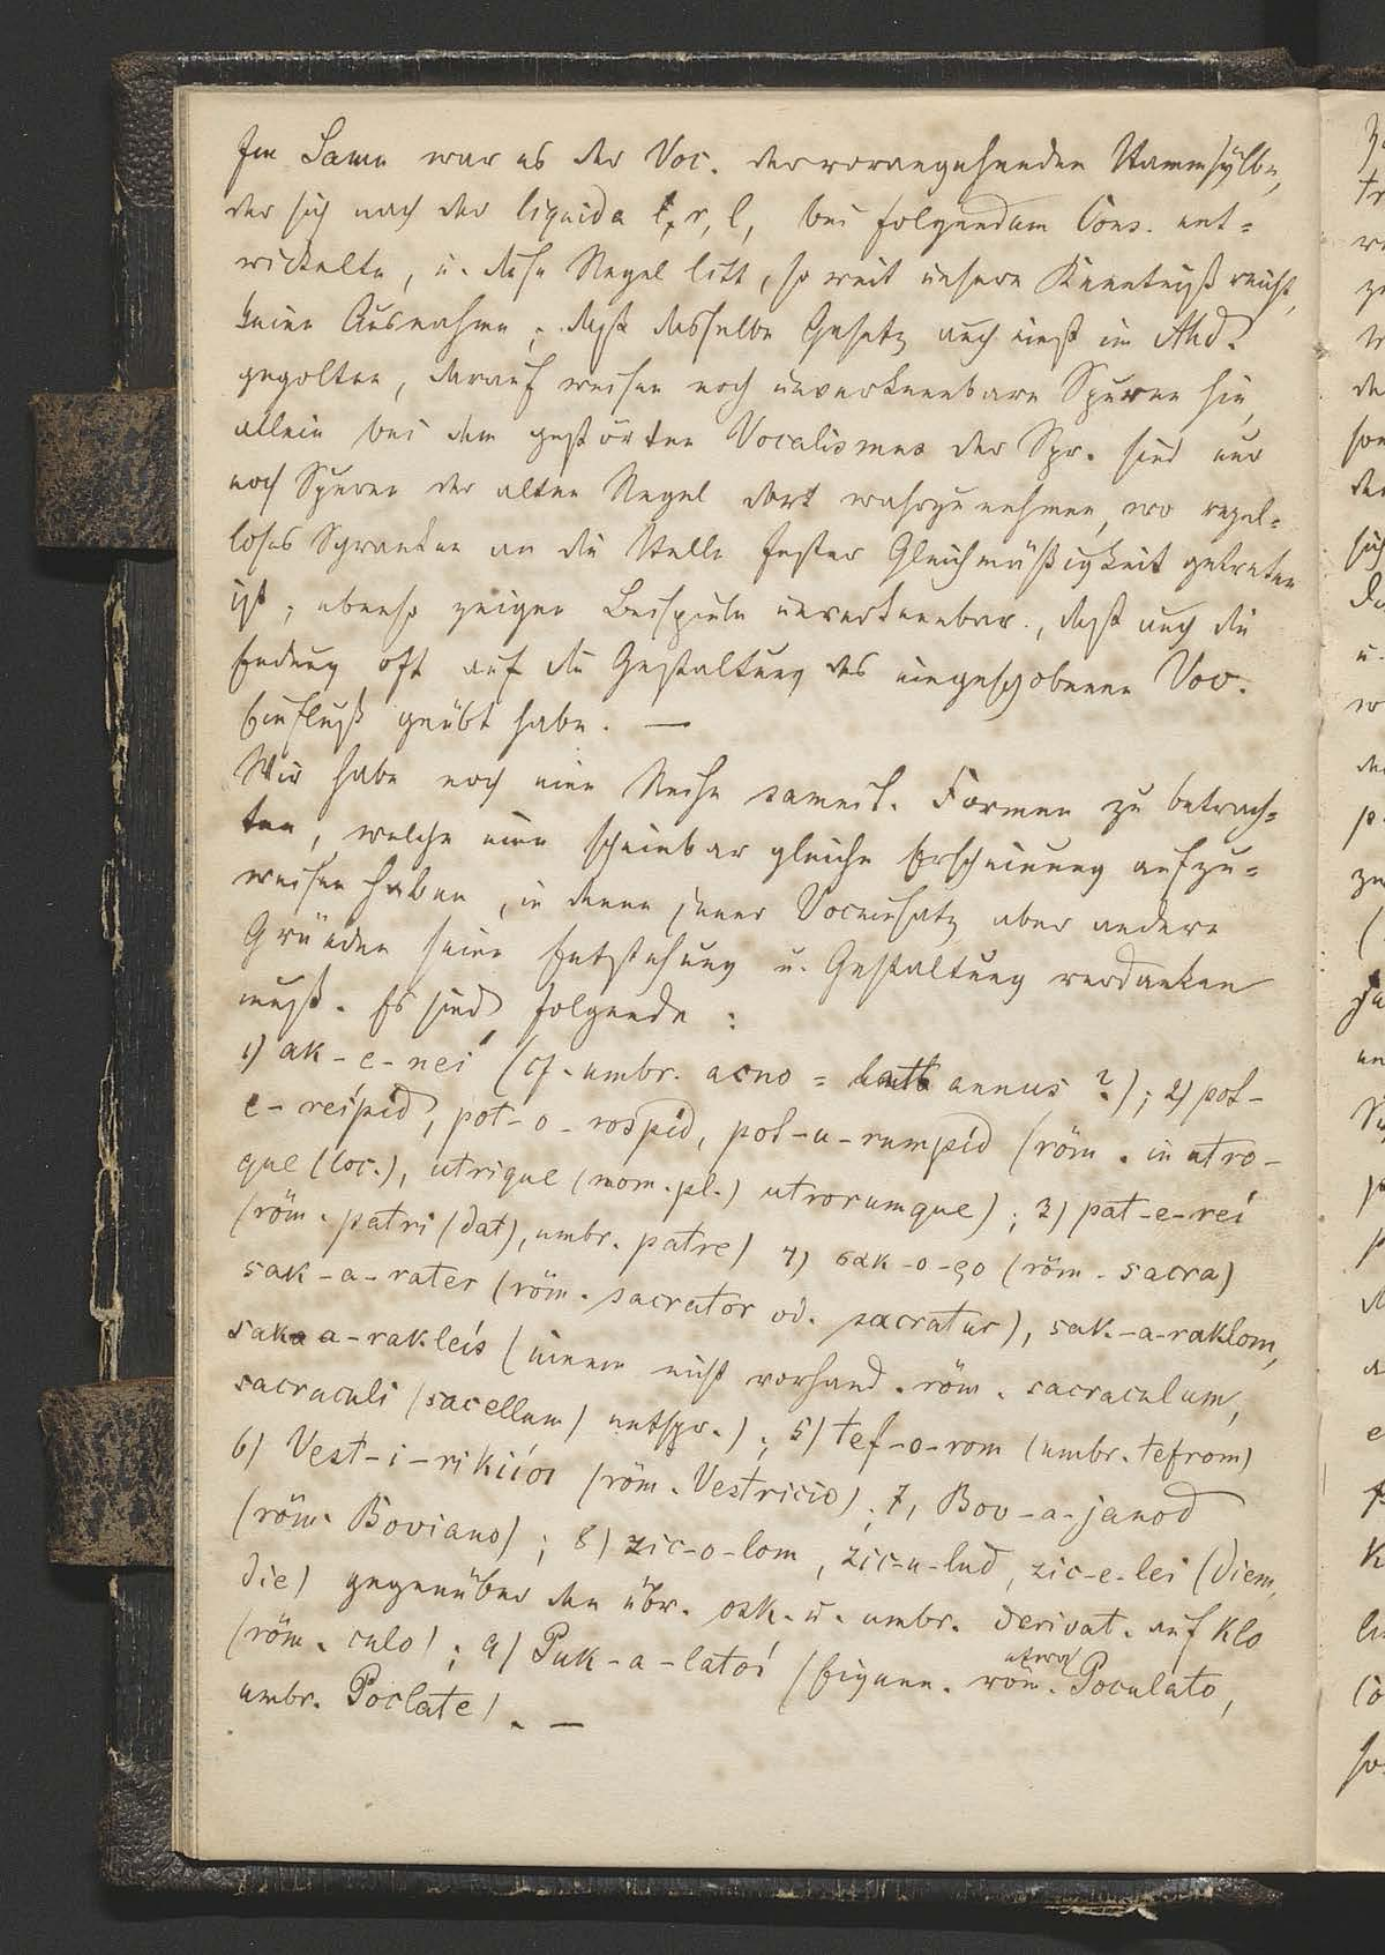 Im Samn war es der Voc. der vorangehenden Stammsylbe,
der sich nach der liquida r, l, bei folgendem Cons. ent-
wickelte, u. diese Regel litt, so weit unsere Kenntniß reicht,
keine Ausnahme; daß dasselbe Gesetz auch einst im Ahd.
gegolten, darauf weisen noch unverkennbare Spuren hin,
allein bei dem gestörten Vocalismus der Spr. sind nur
noch Spuren der alten Regel dort wahrzunehmen, wo regel-
loses Schwanken an die Stelle fester Gleichmäßigkeit getreten
ist; ebenso zeigen Beispiele unverkennbar, daß auch die
Endung oft auf die Gestaltung des eingeschobenen Voc.
Einfluß geübt habe. —
Wir habe noch eine Reihe samnit. Formen zu betrach-
ten, welche eine scheinbar gleiche Erscheinung aufzu-
weisen haben, in denen jener Voceinsatz aber andern
Gründen seine Entstehung u. Gestaltung verdanken
muß. Es sind folgende:
1) ak-e-nei (cf. umbr. acno = annus?); 2) pot-
e-reípid, pot-o-rospid, pot-u-rumpid (röm. in utro-
que (loc.), utrique (nom. pl.) utrorumque); 3) pat-e-reí
(röm. patri (dat), umbr. patre) 4) σακ-ο-ρο (röm. sacra)
sak-a-rater (röm. sacrator od. sacratur), sak-a-raklom,
sak-a-rakleís (einem nicht vorhand. röm. sacraculum,
sacraculi (sacellum) entspr.); 5) tef-o-rom (umbr. tefrom)
6) Vest-i-rikiíoi (röm. Vestricio); 7, Bov-a-janod
(röm. Boviano); 8) zic-o-lom, zic-u-lud, zic-e-lei (diem,
die) gegenüber den übr. osk. u. umbr. derivat. auf klo
(röm. culo); 9) Puk-a-latoí (Eigenn. röm. Poculato,
umbr. Poclate). —